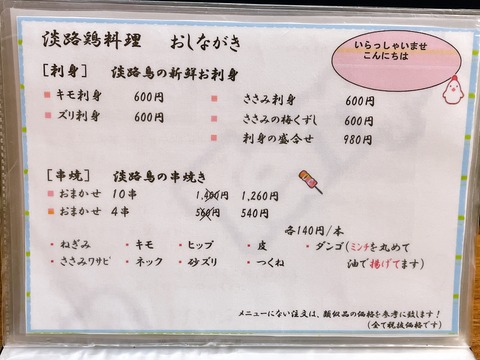 淡路鶏料理 おしながき
いらっしゃいませ
こんにちは
[刺身] 淡路鳥の新鮮お刺身
キモ刺身 600円 ささみ刺身 600円
ズリ刺身 600円 ささみの梅くずし 600円
刺身の盛合せ 980円
[串焼] 淡路鳥の串焼き
おまかせ 10串 1,400円 1,260円
おまかせ 4串 560円 540円
各140円/本
・ねぎみ ・キモ ・ヒップ ・皮 ・ダンゴ(ミンチを丸めて
・ささみワサビ ・ネック ・砂ズリ ・つくね 油で揚げてます)
メニューにない注文は、類似品の価格を参考に致します!
(全て税抜価格です)